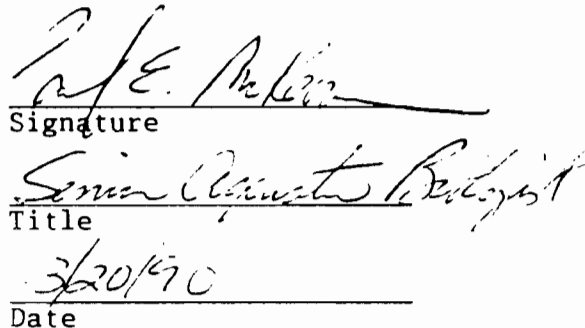 E.
Signature
Senior Aquatic Biologist
Title
3/20/90
Date